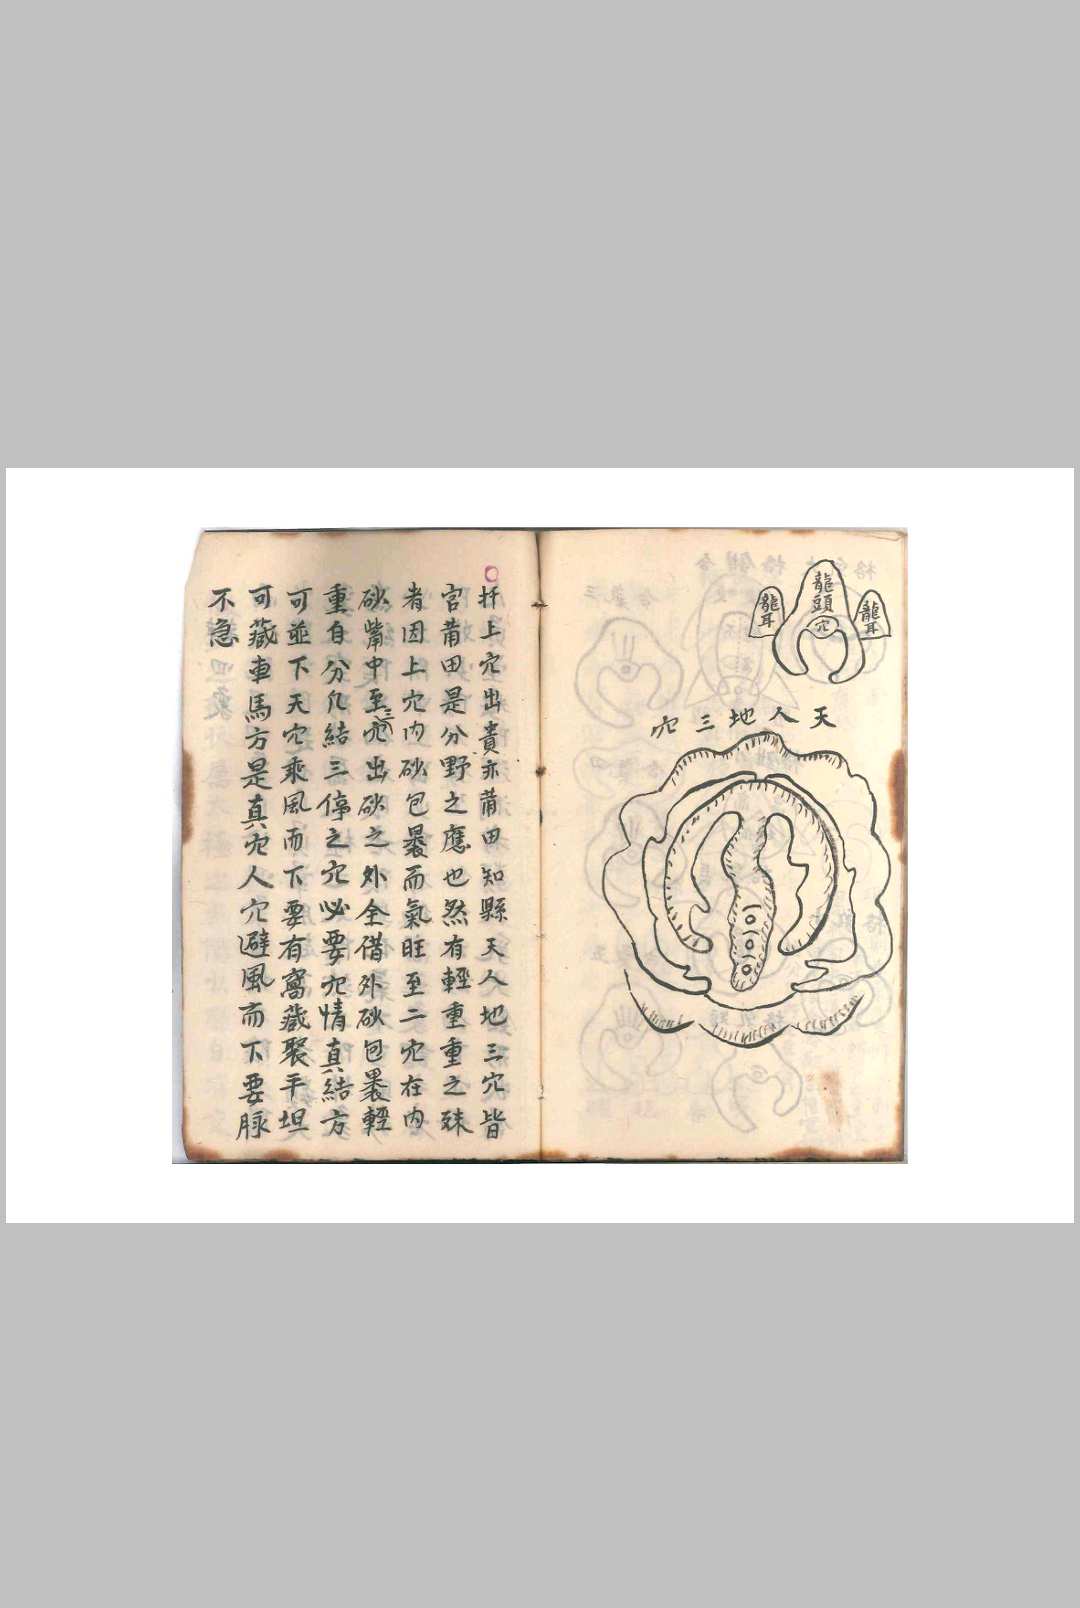 龍耳
龍頭
穴
龍耳
天人地三穴
扦上穴出貴亦莆田知縣天人地三穴皆
宮莆田是分野之應也然有輕重重之殊
者因上穴内砂包裹而氣旺至二穴在内
砂嘴中至三穴出砂之外全借外砂包裹輕
重自分凡結三停之穴必要穴情真結方
可並下天穴乘風而下要有窩藏聚平坦
可藏車馬方是真穴人穴避風而下要脉
不急